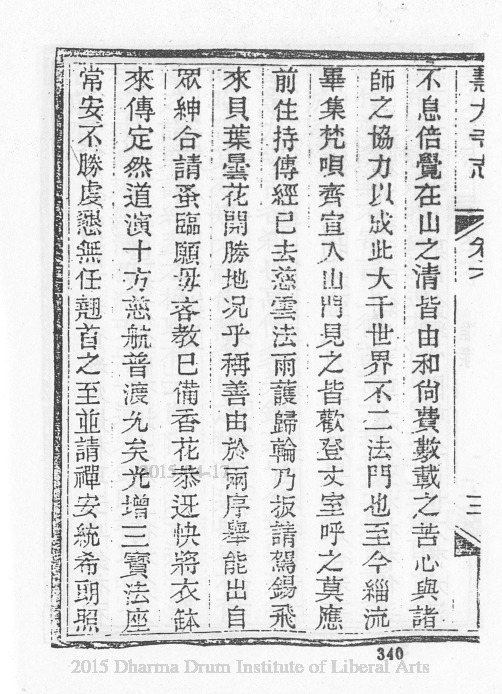 不息倍覺在山之清皆由和尙費數載之苦心與諸
師之協力以成此大千世界不二法門也至今緇流
畢集梵唄齊宣入山門見之皆歡登丈室呼之莫應
前住持傳經已去慈雲法雨護歸輪乃扳請駕錫飛
來貝葉曇花開勝地况乎稱善由於兩序舉能出自
眾紳合請蚤臨願毋吝教巳備香花恭迓快將衣缽
來傳定然道演十方慈航普渡尤矣光增三寶法座
常安不勝虔懇無任翹首之至並請禪安統希朗照
卷六
三
340
2015 Dharma Drum Institute of Liberal Arts